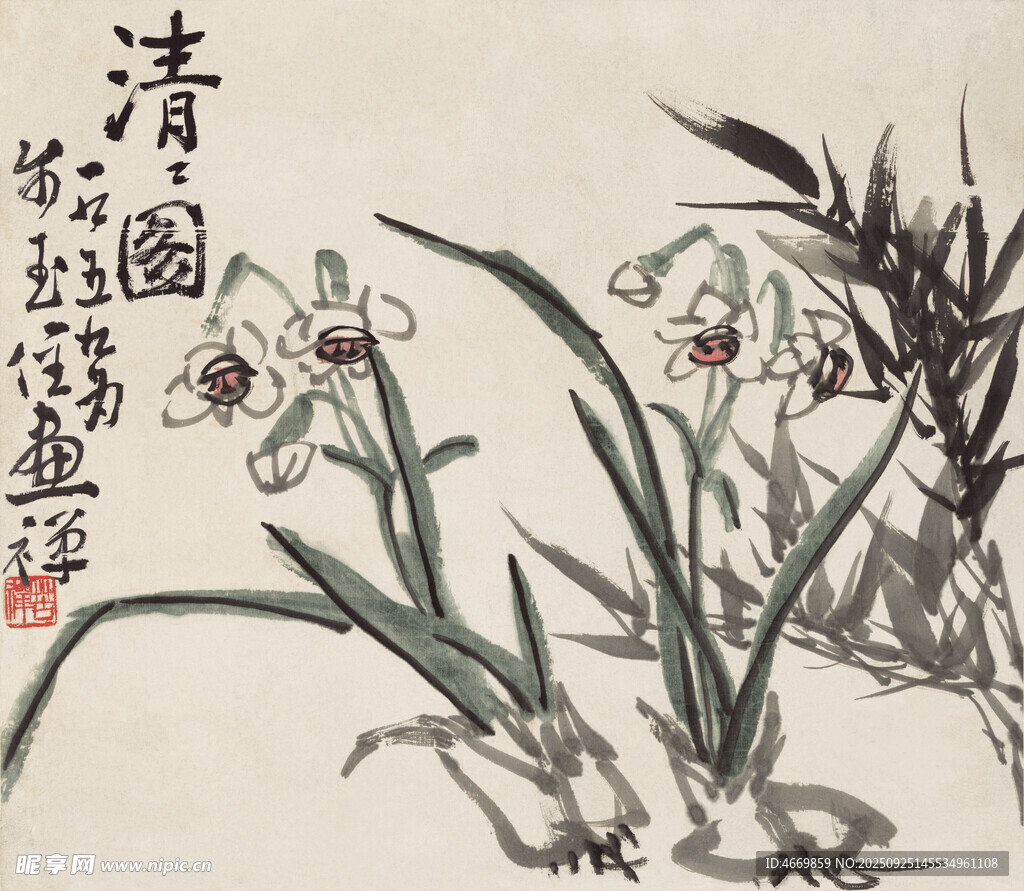 清二图
一九五九为
玉侄画禅
昵享网 www.nipic.cn
ID:4669859 NO:20250925145534961108